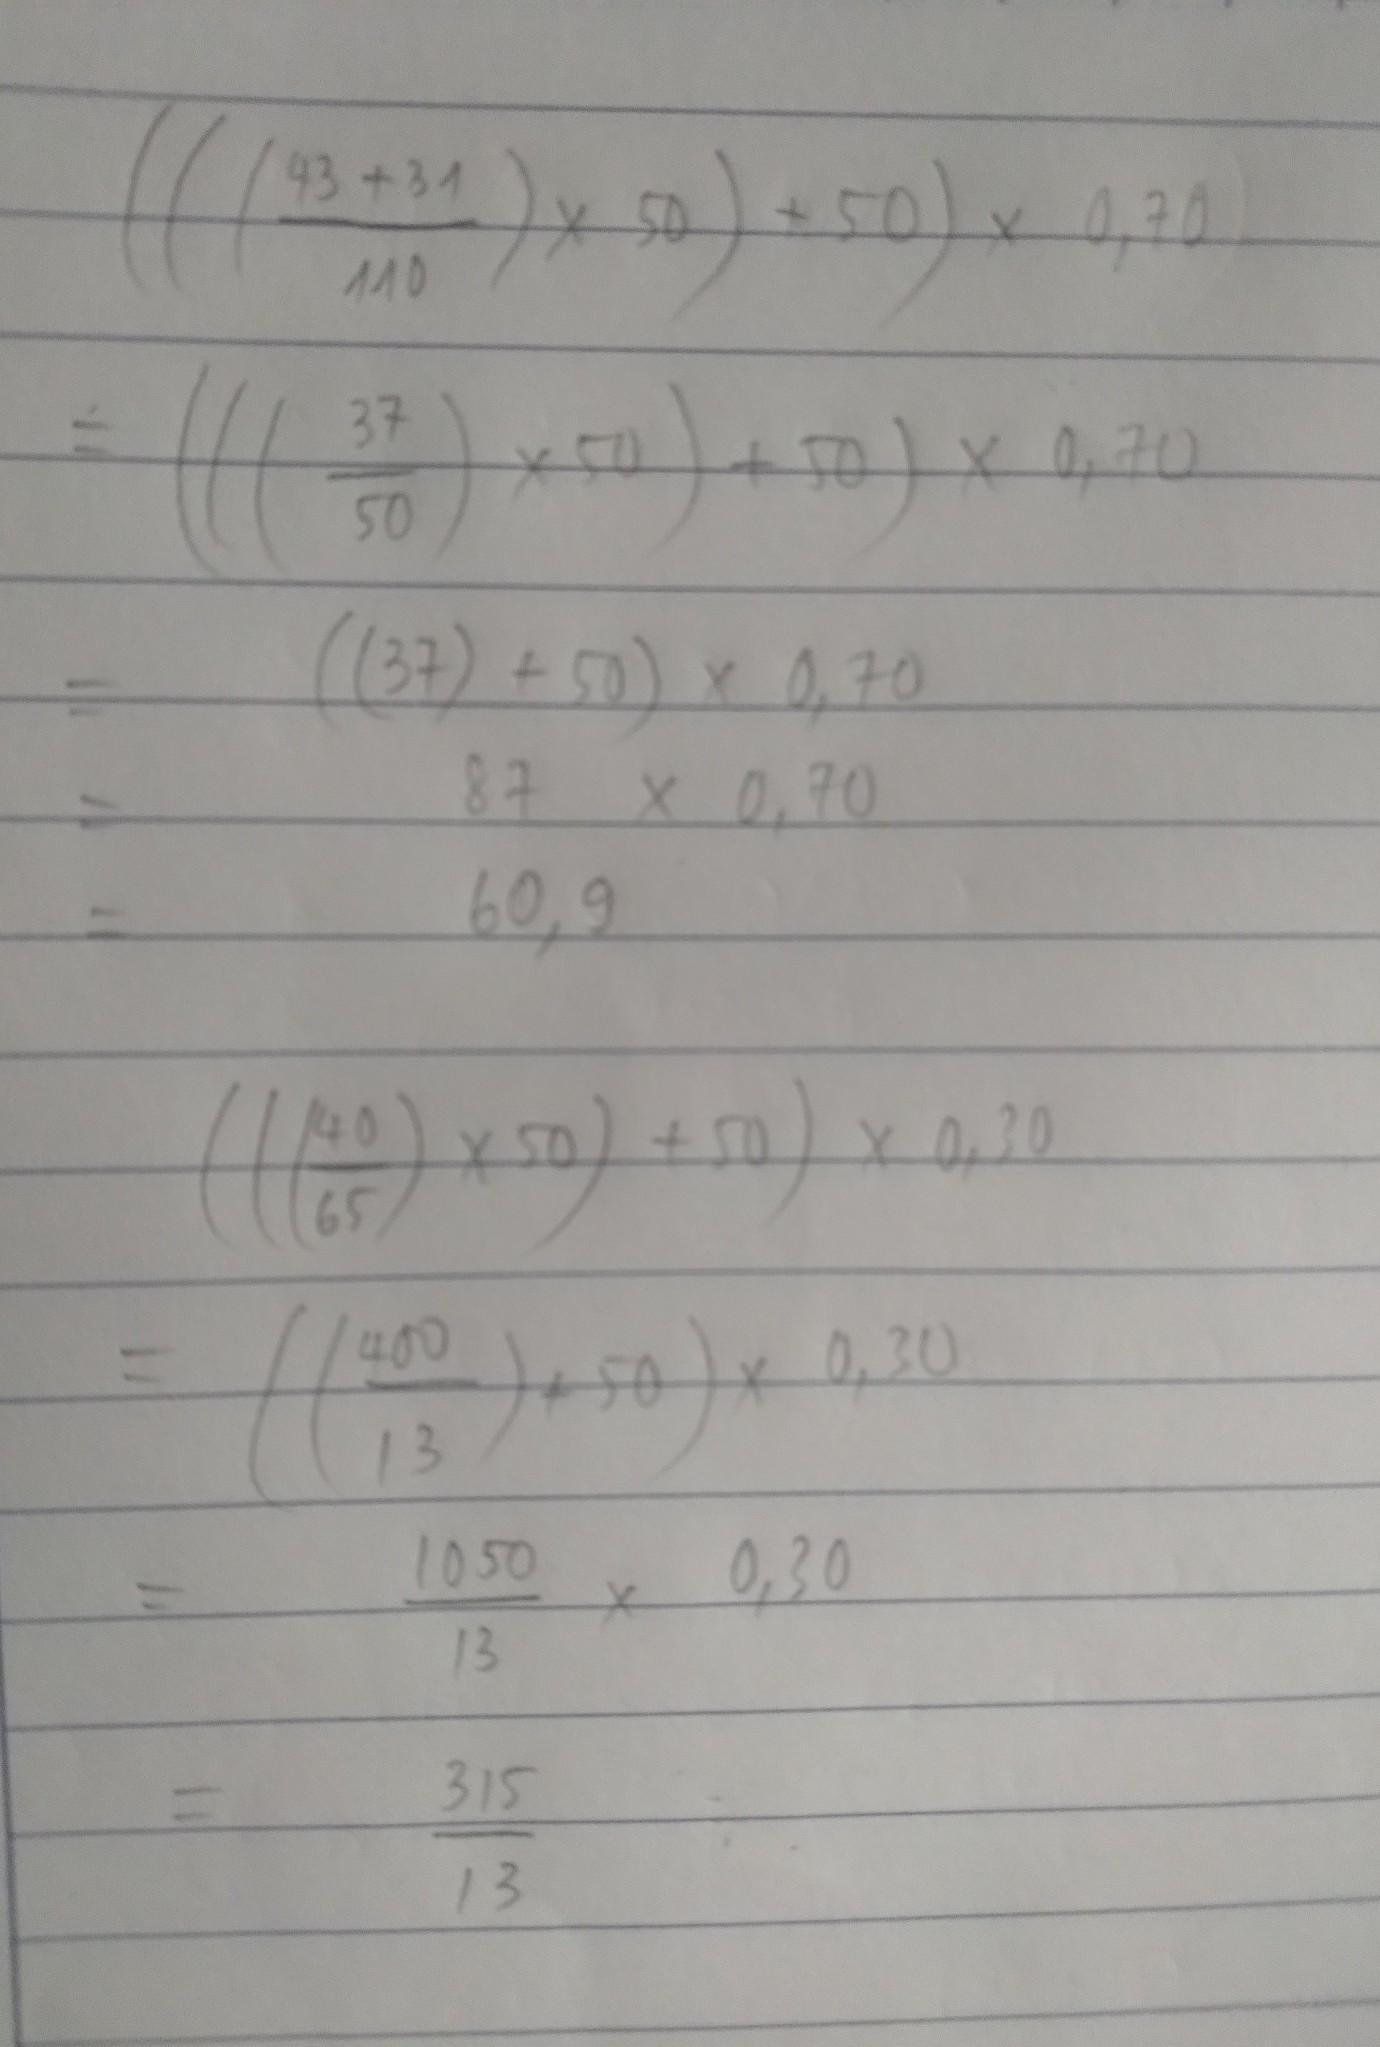 (((43+31/110) × 50) + 50) × 0,70
= (((37/50) × 50) + 50) × 0,70
= ((37) + 50) × 0,70
= 87 × 0,70
= 60,9
(((40/65) × 50) + 50) × 0,30
= ((400/13) + 50) × 0,30
= 1050/13 × 0,30
= 315/13